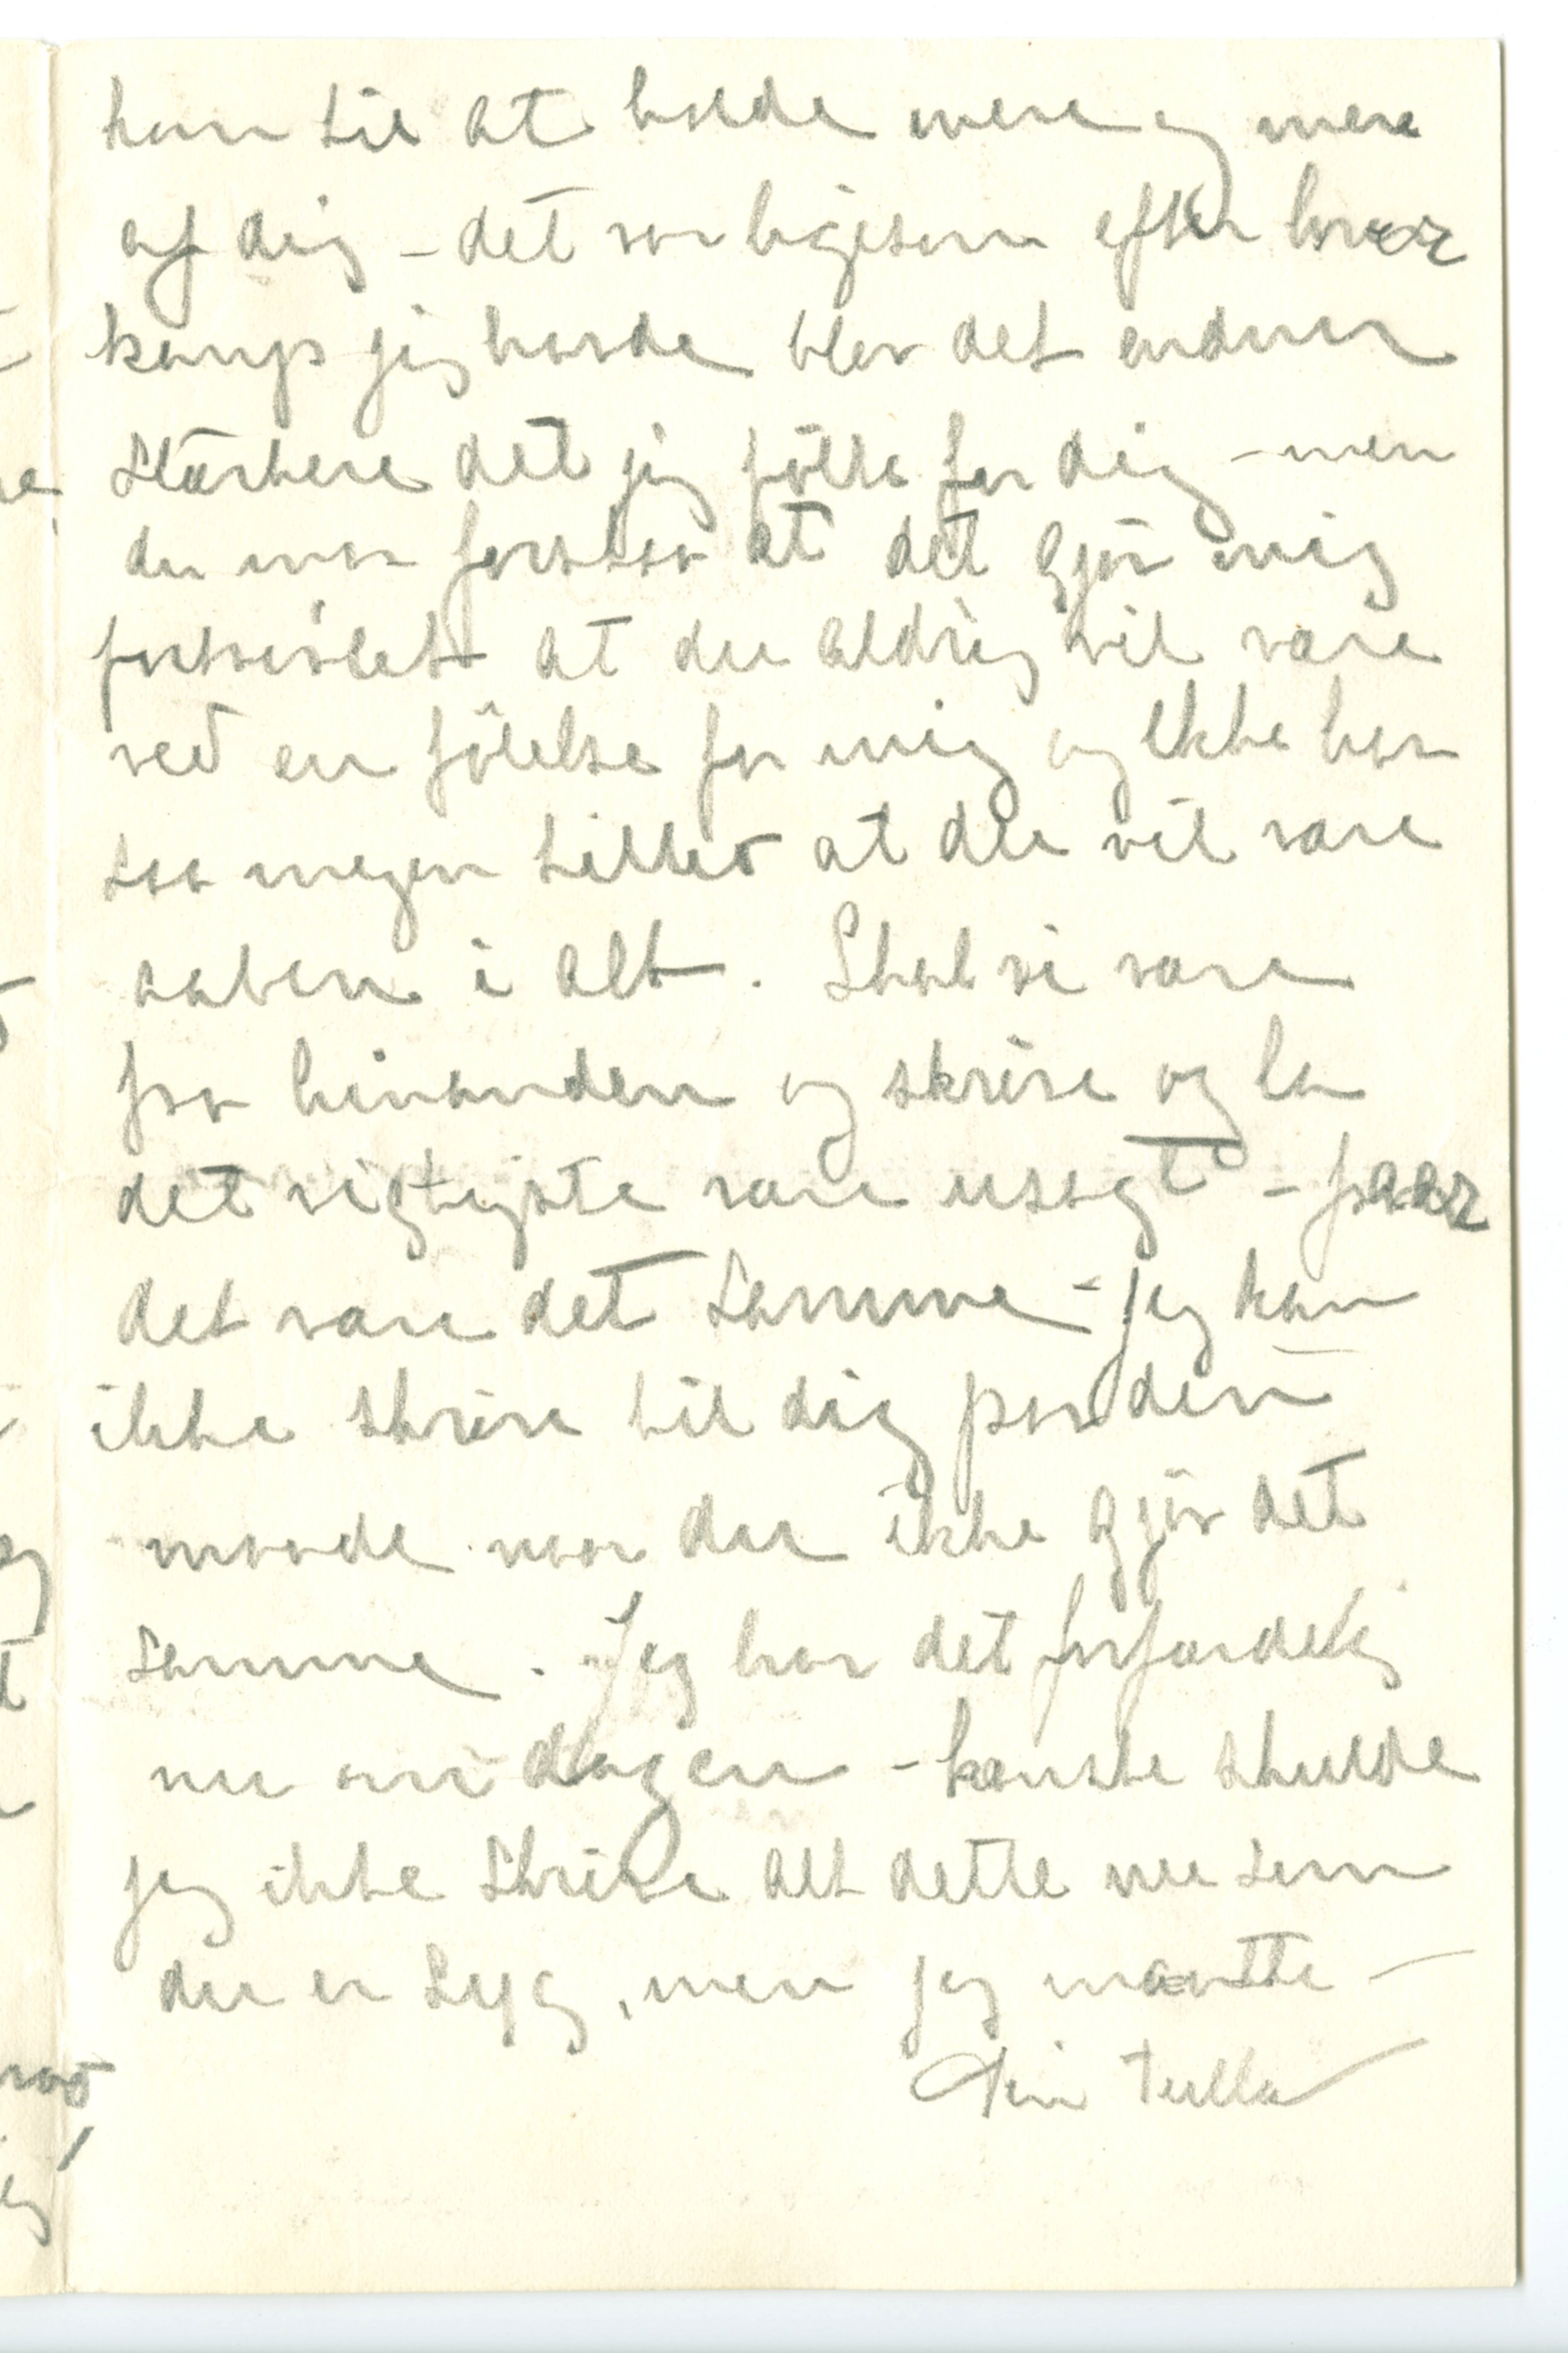 kom til at holde mere og mere
af dig – det var ligesom efter hver
kamp jeg havde blev det endnu
stærkere det jeg følte for dig – men
du maa forstaa at det gjør mig
fortvivlet at du aldrig vil være
ved en følelse for mig og ikke har
saa megen tillid at du vil være
aaben i alt. Skal vi være
fra hinanden og skrive og la
det vigtigste være usagt – faar
det være det samme – jeg kan
ikke skrive til dig paa den
maade naar du ikke gjør det
samme. Jeg har det forfærdelig
nu om dagen – kanske skulde
jeg ikke skrive alt dette nu som
du er syg, men jeg maatte –
Din Tulla